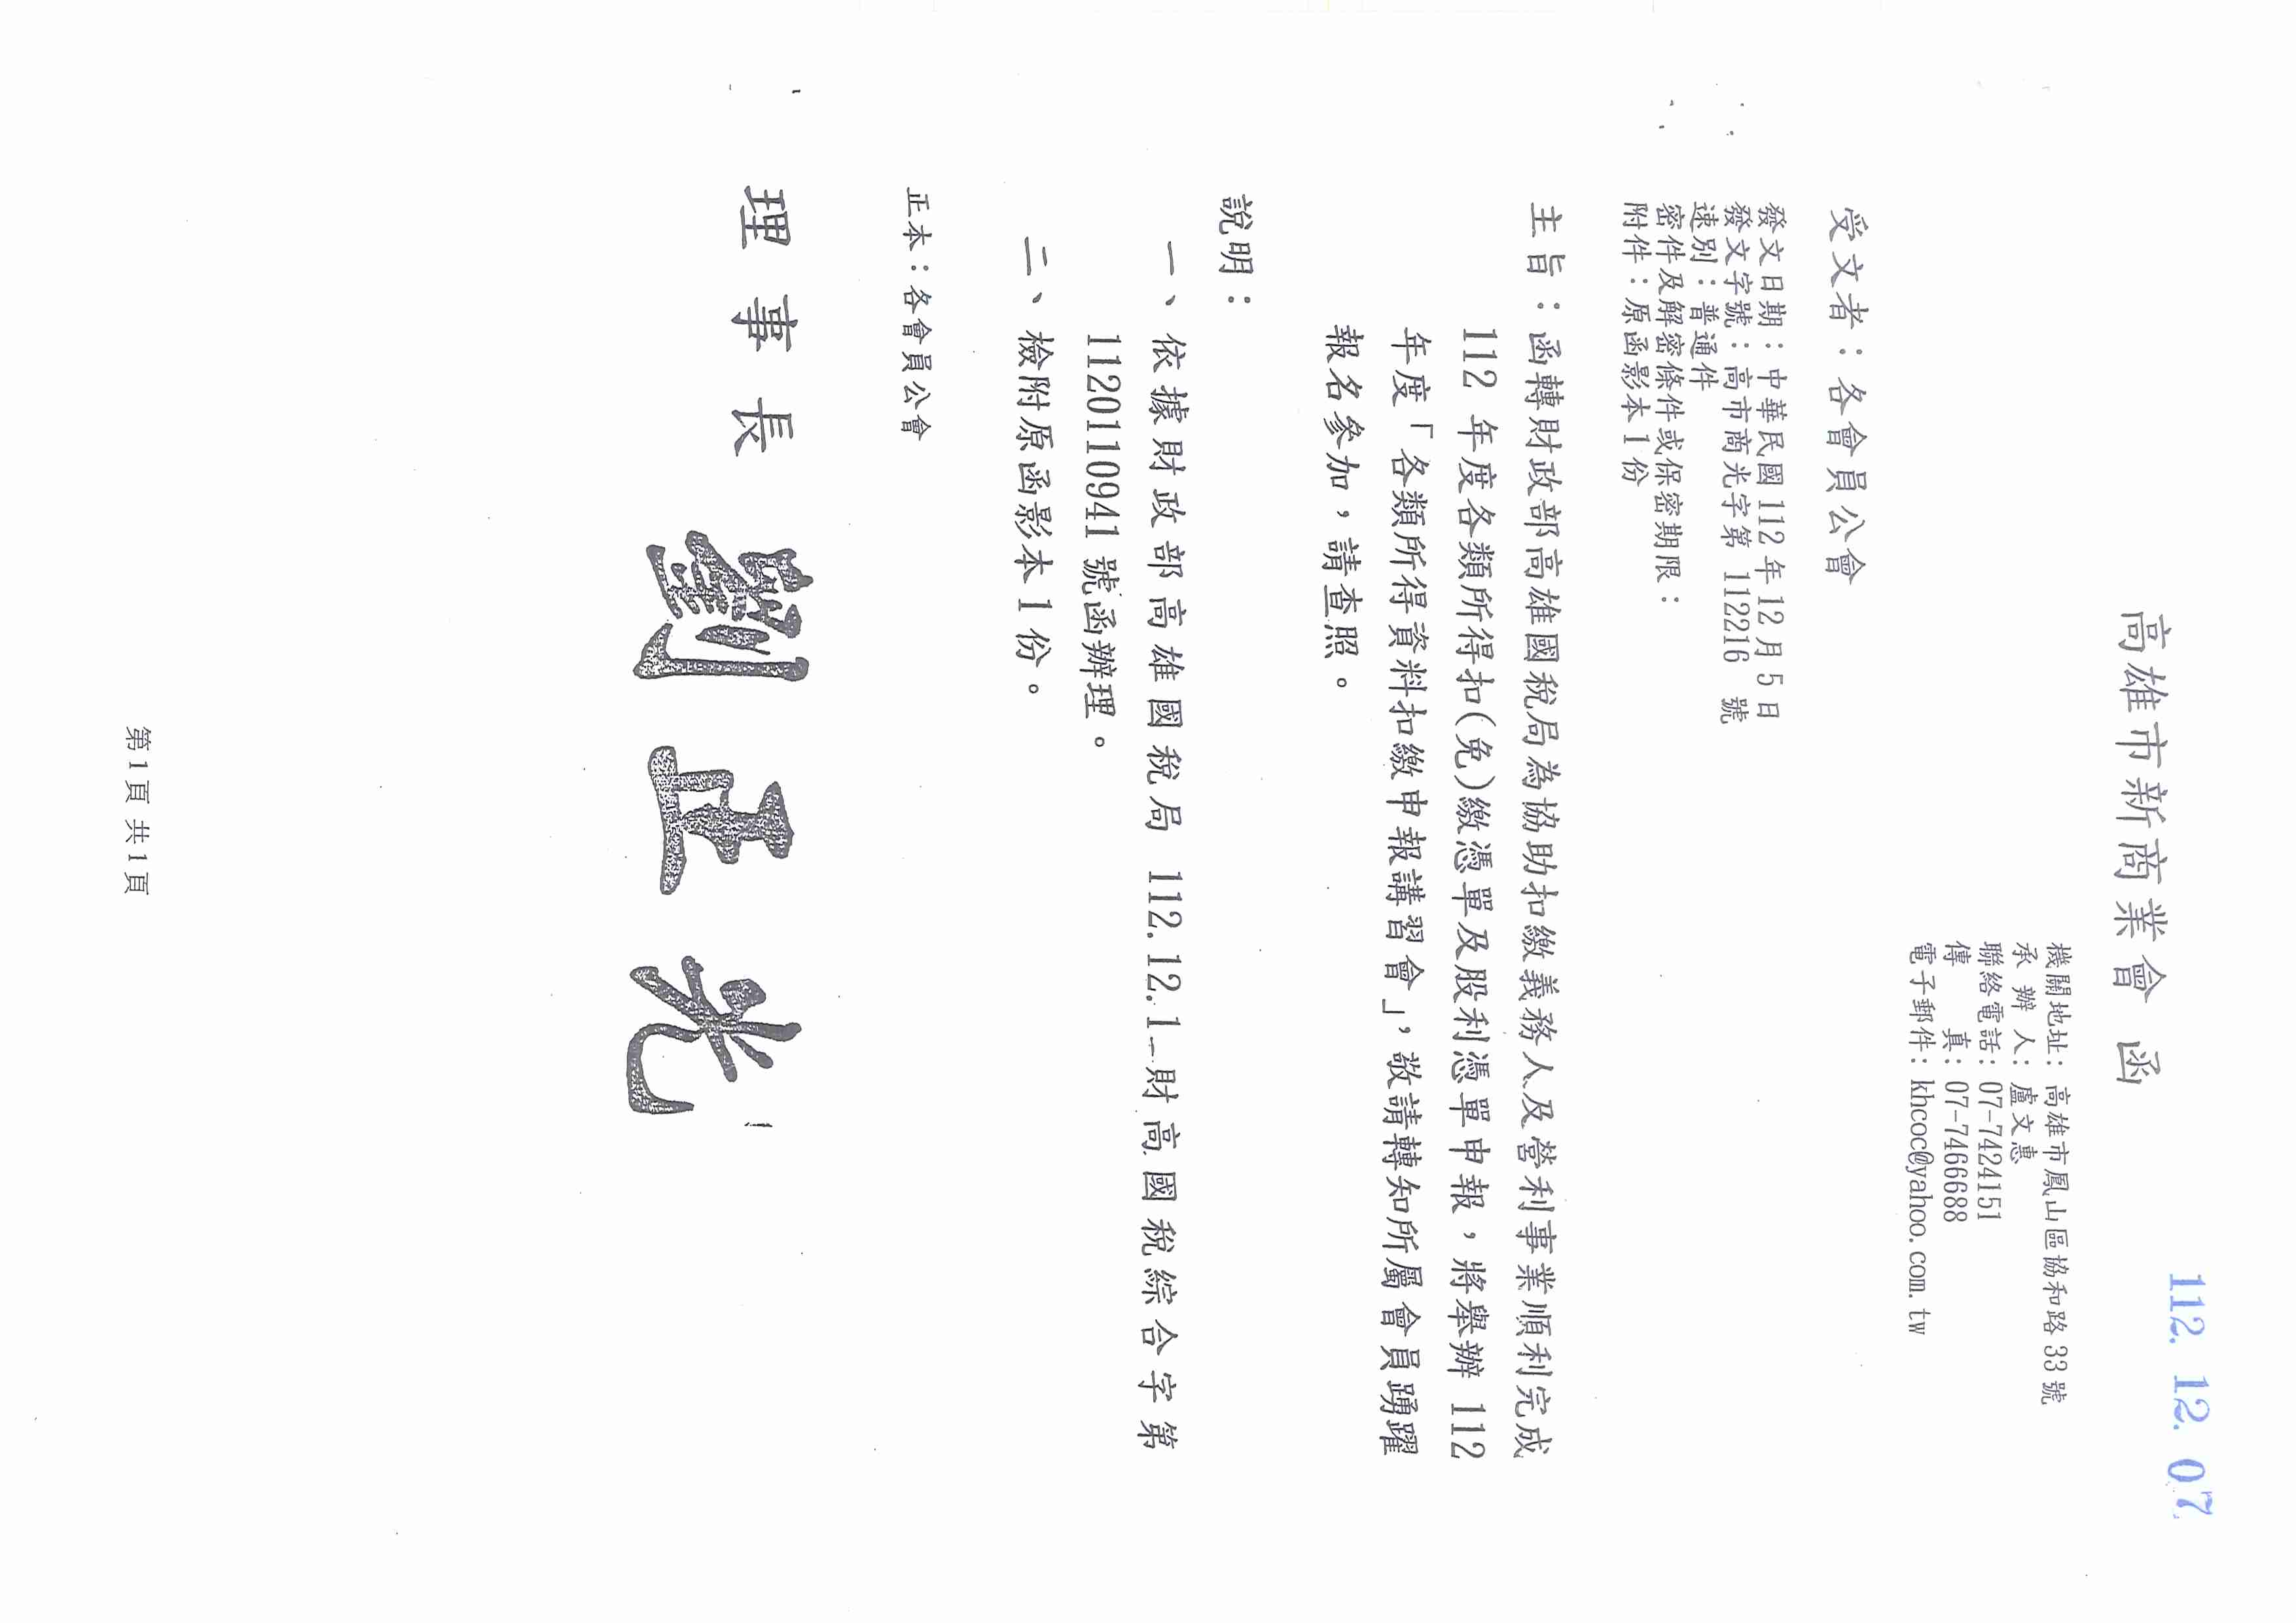 112. 12. 07
高雄市新商業會 函
機關地址：高雄市鳳山區協和路 33 號
承 辦 人：盧文惠
聯絡電話：07-7424151
傳 真：07-7466688
電子郵件：khcoc@yahoo.com.tw
受文者：各會員公會
發文日期：中華民國 112 年 12 月 5 日
發文字號：高市商光字第 112216 號
速別：普通件
密件及解密條件或保密期限：
附件：原函影本 1 份
主旨：函轉財政部高雄國稅局為協助扣繳義務人及營利事業順利完成
112 年度各類所得扣(免)繳憑單及股利憑單申報，將舉辦 112
年度「各類所得資料扣繳申報講習會」，敬請轉知所屬會員踴躍
報名參加，請查照。
說明：
一、依據財政部高雄國稅局 112.12.1—財高國稅綜合字第
1120110941 號函辦理。
二、檢附原函影本 1 份。
正本：各會員公會
理事長 劉正光
第 1 頁 共 1 頁